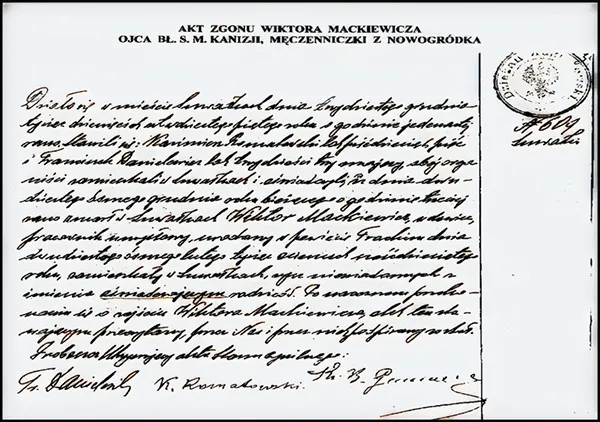 AKT ZGONU WIKTORA MACKIEWICZA
OJCA BŁ. S. M. KANIZJI, MĘCZENNICZKI Z NOWOGRÓDKA
Działo się w mieście Suwałkach dnia trzydziestego grudnia
tysiąc dziewięćset dwudziestego piątego roku o godzinie jedenastej
rano. Stawili się: Kazimierz lat pięćdziesiąt pięć
i Franciszek Danilewicz lat trzydzieści trzy mający, obaj orga-
niści zamieszkali w Suwałkach i oświadczyli, że dnia dwu-
dziestego ósmego grudnia roku bieżącego o godzinie trzeciej
rano umarł w Suwałkach Wiktor Mackiewicz, wdowiec,
pracownik umysłowy, urodzony w powiecie Trockim dnia
dwudziestego ósmego lutego tysiąc osiemset
roku, zamieszkały w Suwałkach, syn niewiadomych z
imienia oświadczającym rodziców. Po naocznem przekona-
niu się o zejściu Wiktora Mackiewicza, akt ten sta-
wającym przeczytany, przez Nas i przez nich podpisany został.
Proboszcz Utrzymujący akta stanu cywilnego:
Fr. Danilewicz K. Romatowski. Ks. B.
№ 609
Suwałki